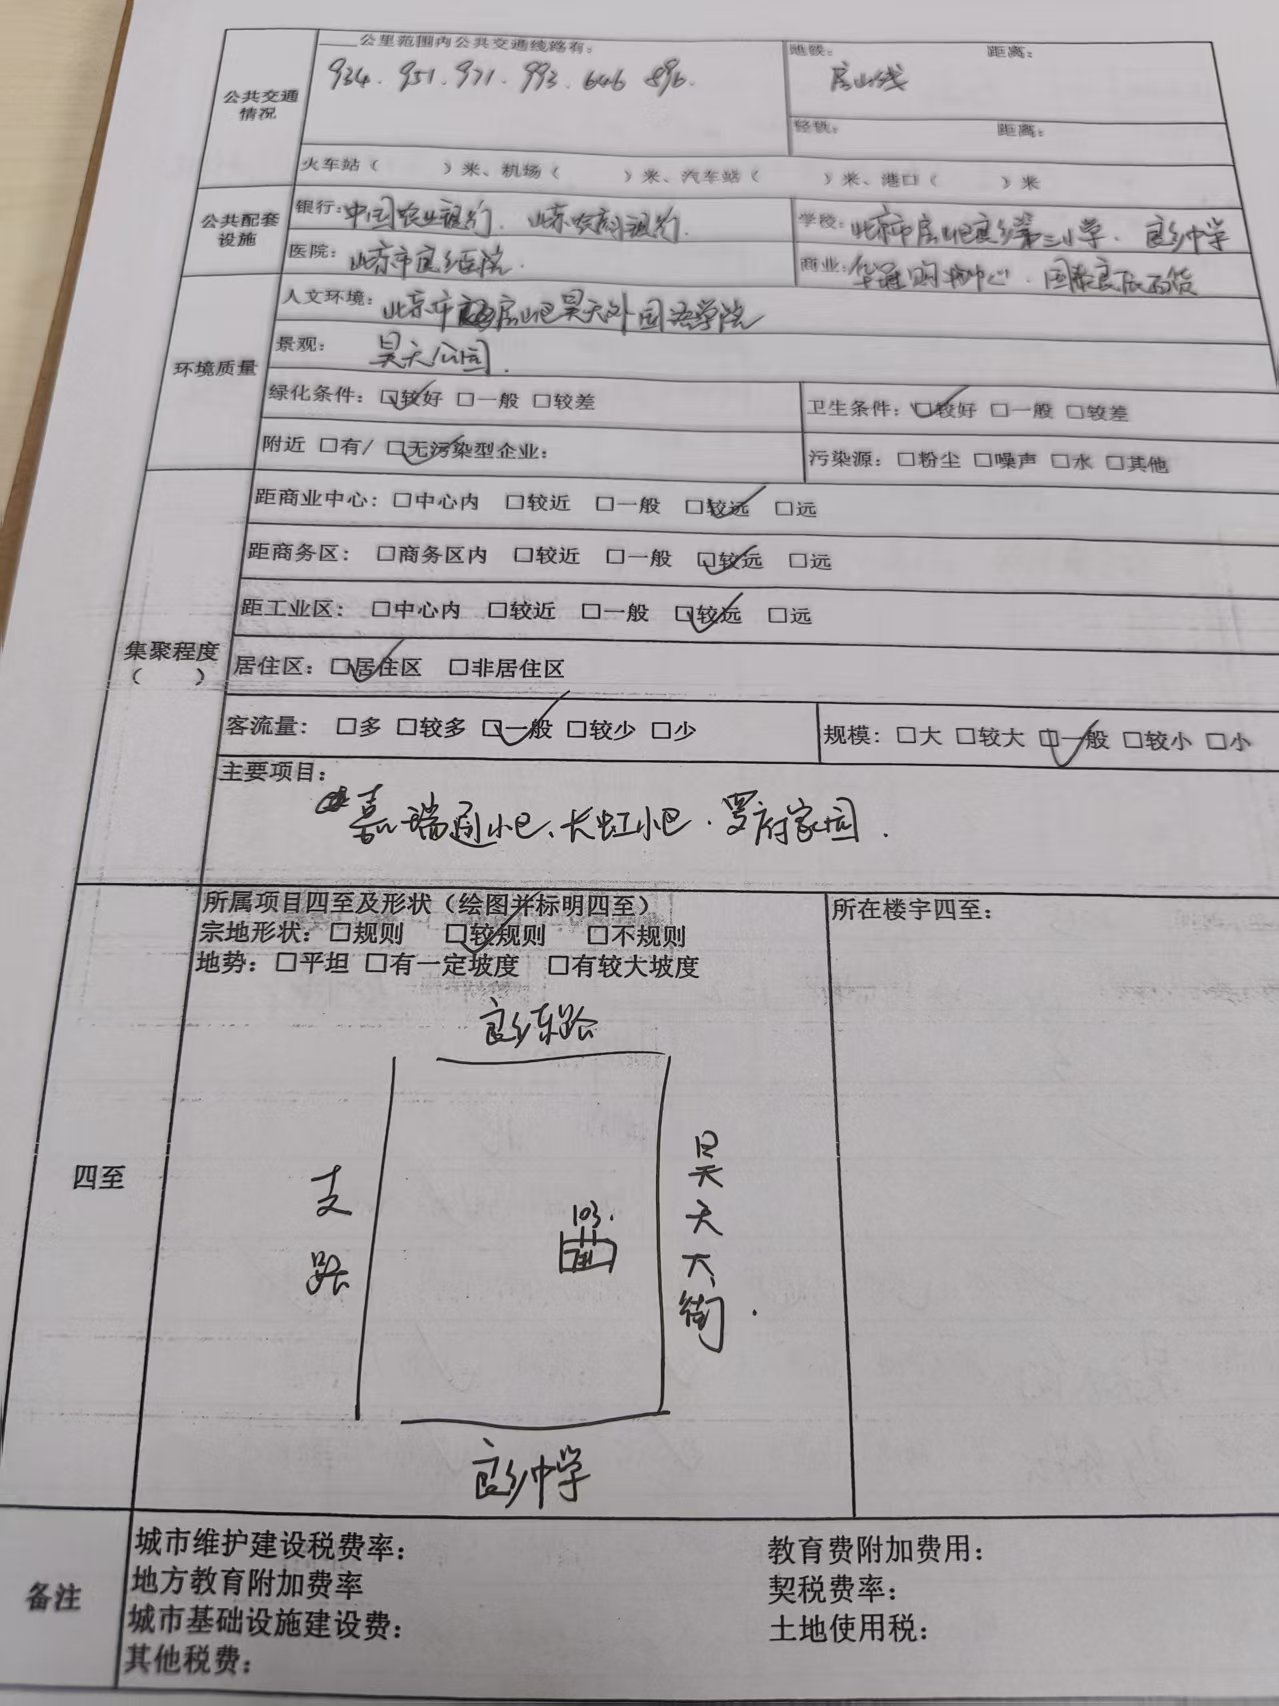 ____公里范围内公共交通线路有：
934．951．971．993．646 896．
地铁： 距离：
房山线
公共交通情况
轻轨： 距离：
火车站（ ）米、机场（ ）米、汽车站（ ）米、港口（ ）米
公共配套设施
银行：中国农业银行、北京农商银行．
学校：北京市房山区良乡第三小学．良乡中学
医院：北京市良乡医院．
商业：华冠购物中心．国泰良辰百货
环境质量
人文环境：北京市房山区昊天外国语学院
景观： 昊天公园．
绿化条件：☑较好 □一般 □较差
卫生条件：☑较好 □一般 □较差
附近 □有/ ☑无污染型企业：
污染源：□粉尘 □噪声 □水 □其他
集聚程度（ ）
距商业中心：□中心内 □较近 □一般 ☑较远 □远
距商务区： □商务区内 □较近 □一般 ☑较远 □远
距工业区： □中心内 □较近 □一般 ☑较远 □远
居住区：☑居住区 □非居住区
客流量： □多 □较多 ☑一般 □较少 □少
规模：□大 □较大 ☑一般 □较小 □小
主要项目：
嘉瑞园小区、长虹小区．罗府家园．
四至
所属项目四至及形状（绘图并标明四至）
宗地形状：□规则 ☑较规则 □不规则
地势：□平坦 □有一定坡度 □有较大坡度
所在楼宇四至：
良乡东路
支路
103.
昊天大街．
良乡中学
备注
城市维护建设税费率：
教育费附加费用：
地方教育附加费率
契税费率：
城市基础设施建设费：
土地使用税：
其他税费：